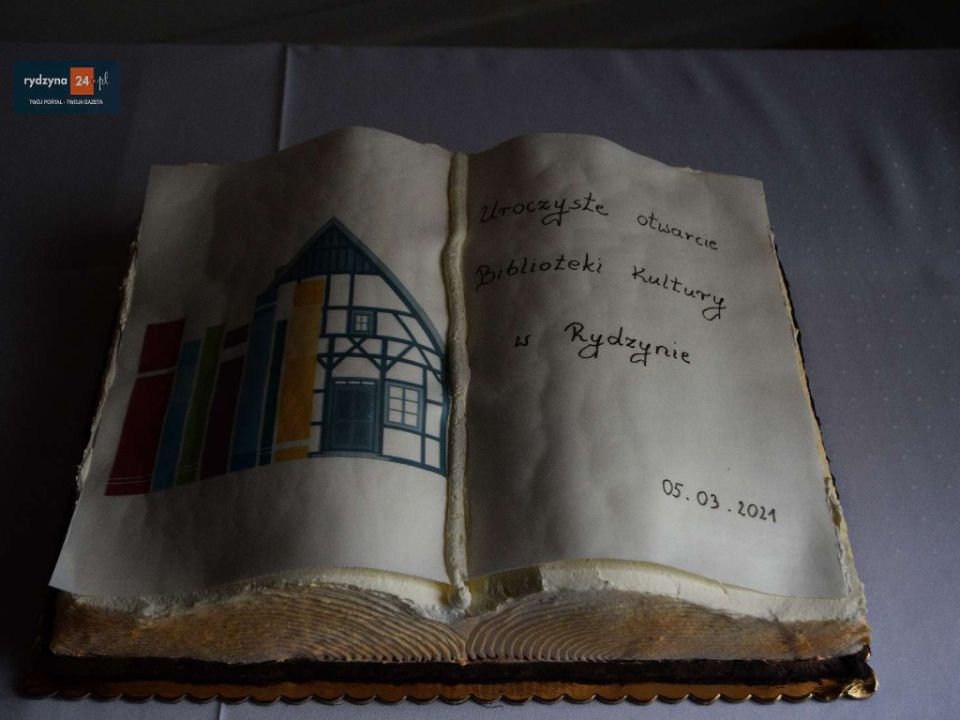 rydzyna 24.pl
TWÓJ PORTAL - TWOJA GAZETA
Uroczyste otwarcie
Biblioteki Kultury
w Rydzynie
05.03.2021